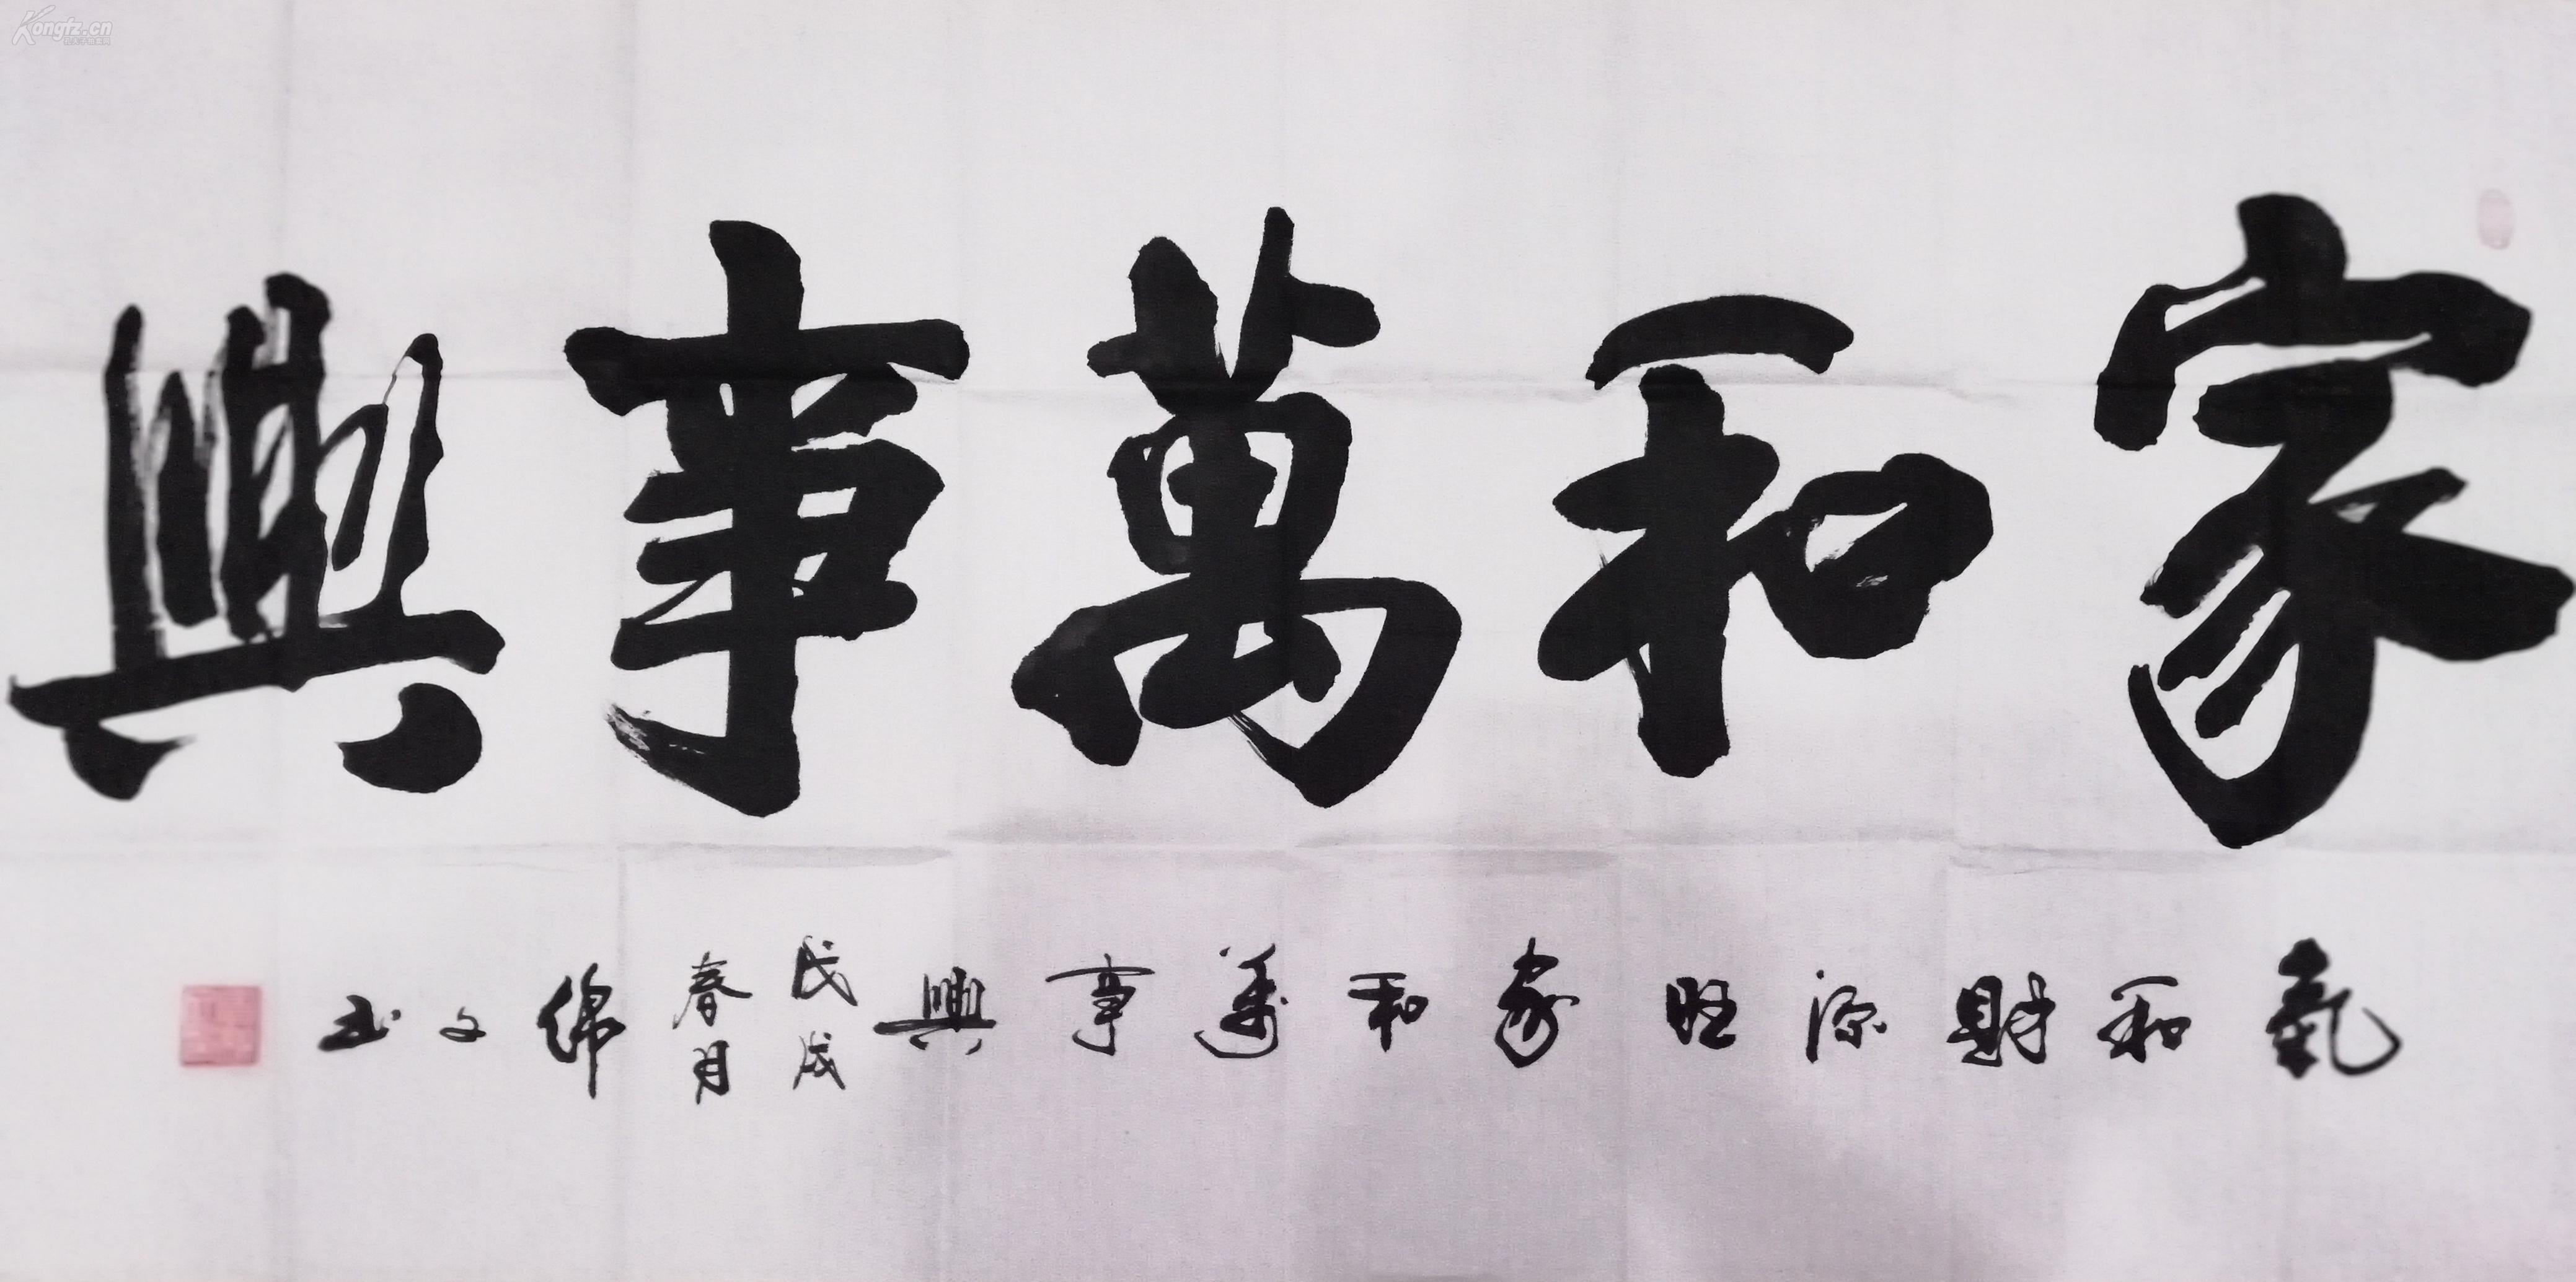 家和萬事興
氣和財源旺家和萬事興戊戌春月錦文書
Kongfz.cn